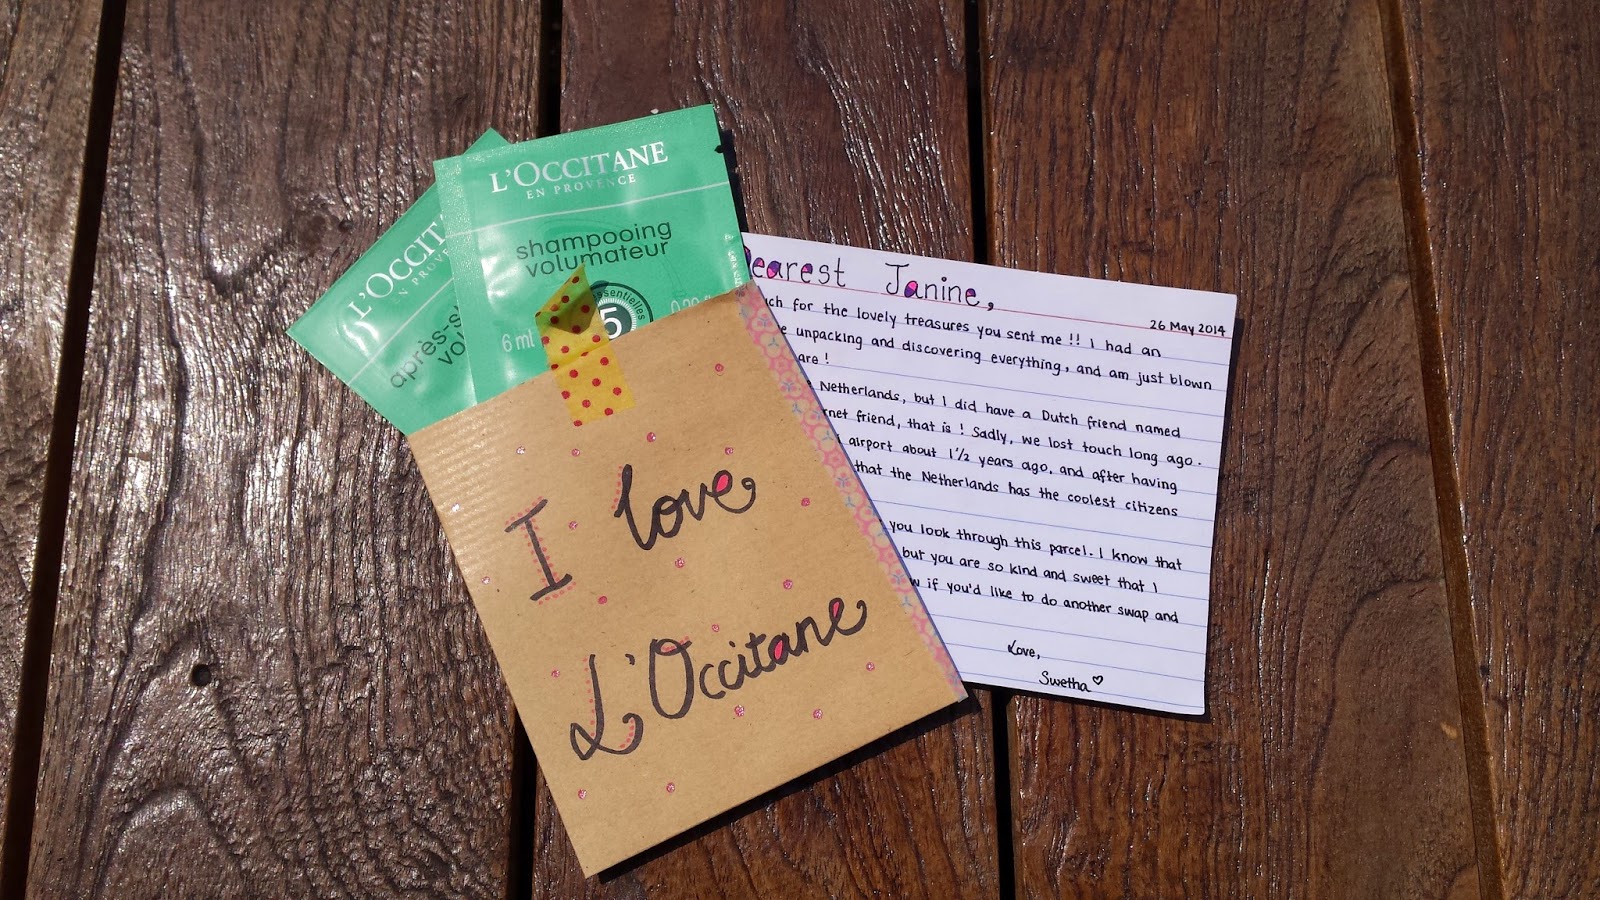 L'OCCIT
EN PROVE
après-s
vo
L'OCCITANE
EN PROVENCE
shampooing
volumateur
essentielles
5
6 ml
I love
L'Occitane
Dearest Janine,
26 May 2014
ch for the lovely treasures you sent me!! I had an
unpacking and discovering everything, and am just blown
are!
Netherlands, but I did have a Dutch friend named
rnet friend, that is! Sadly, we lost touch long ago.
airport about 1½ years ago, and after having
that the Netherlands has the coolest citizens
you look through this parcel. I know that
but you are so kind and sweet that I
w if you'd like to do another swap and
Love,
Swetha ♡